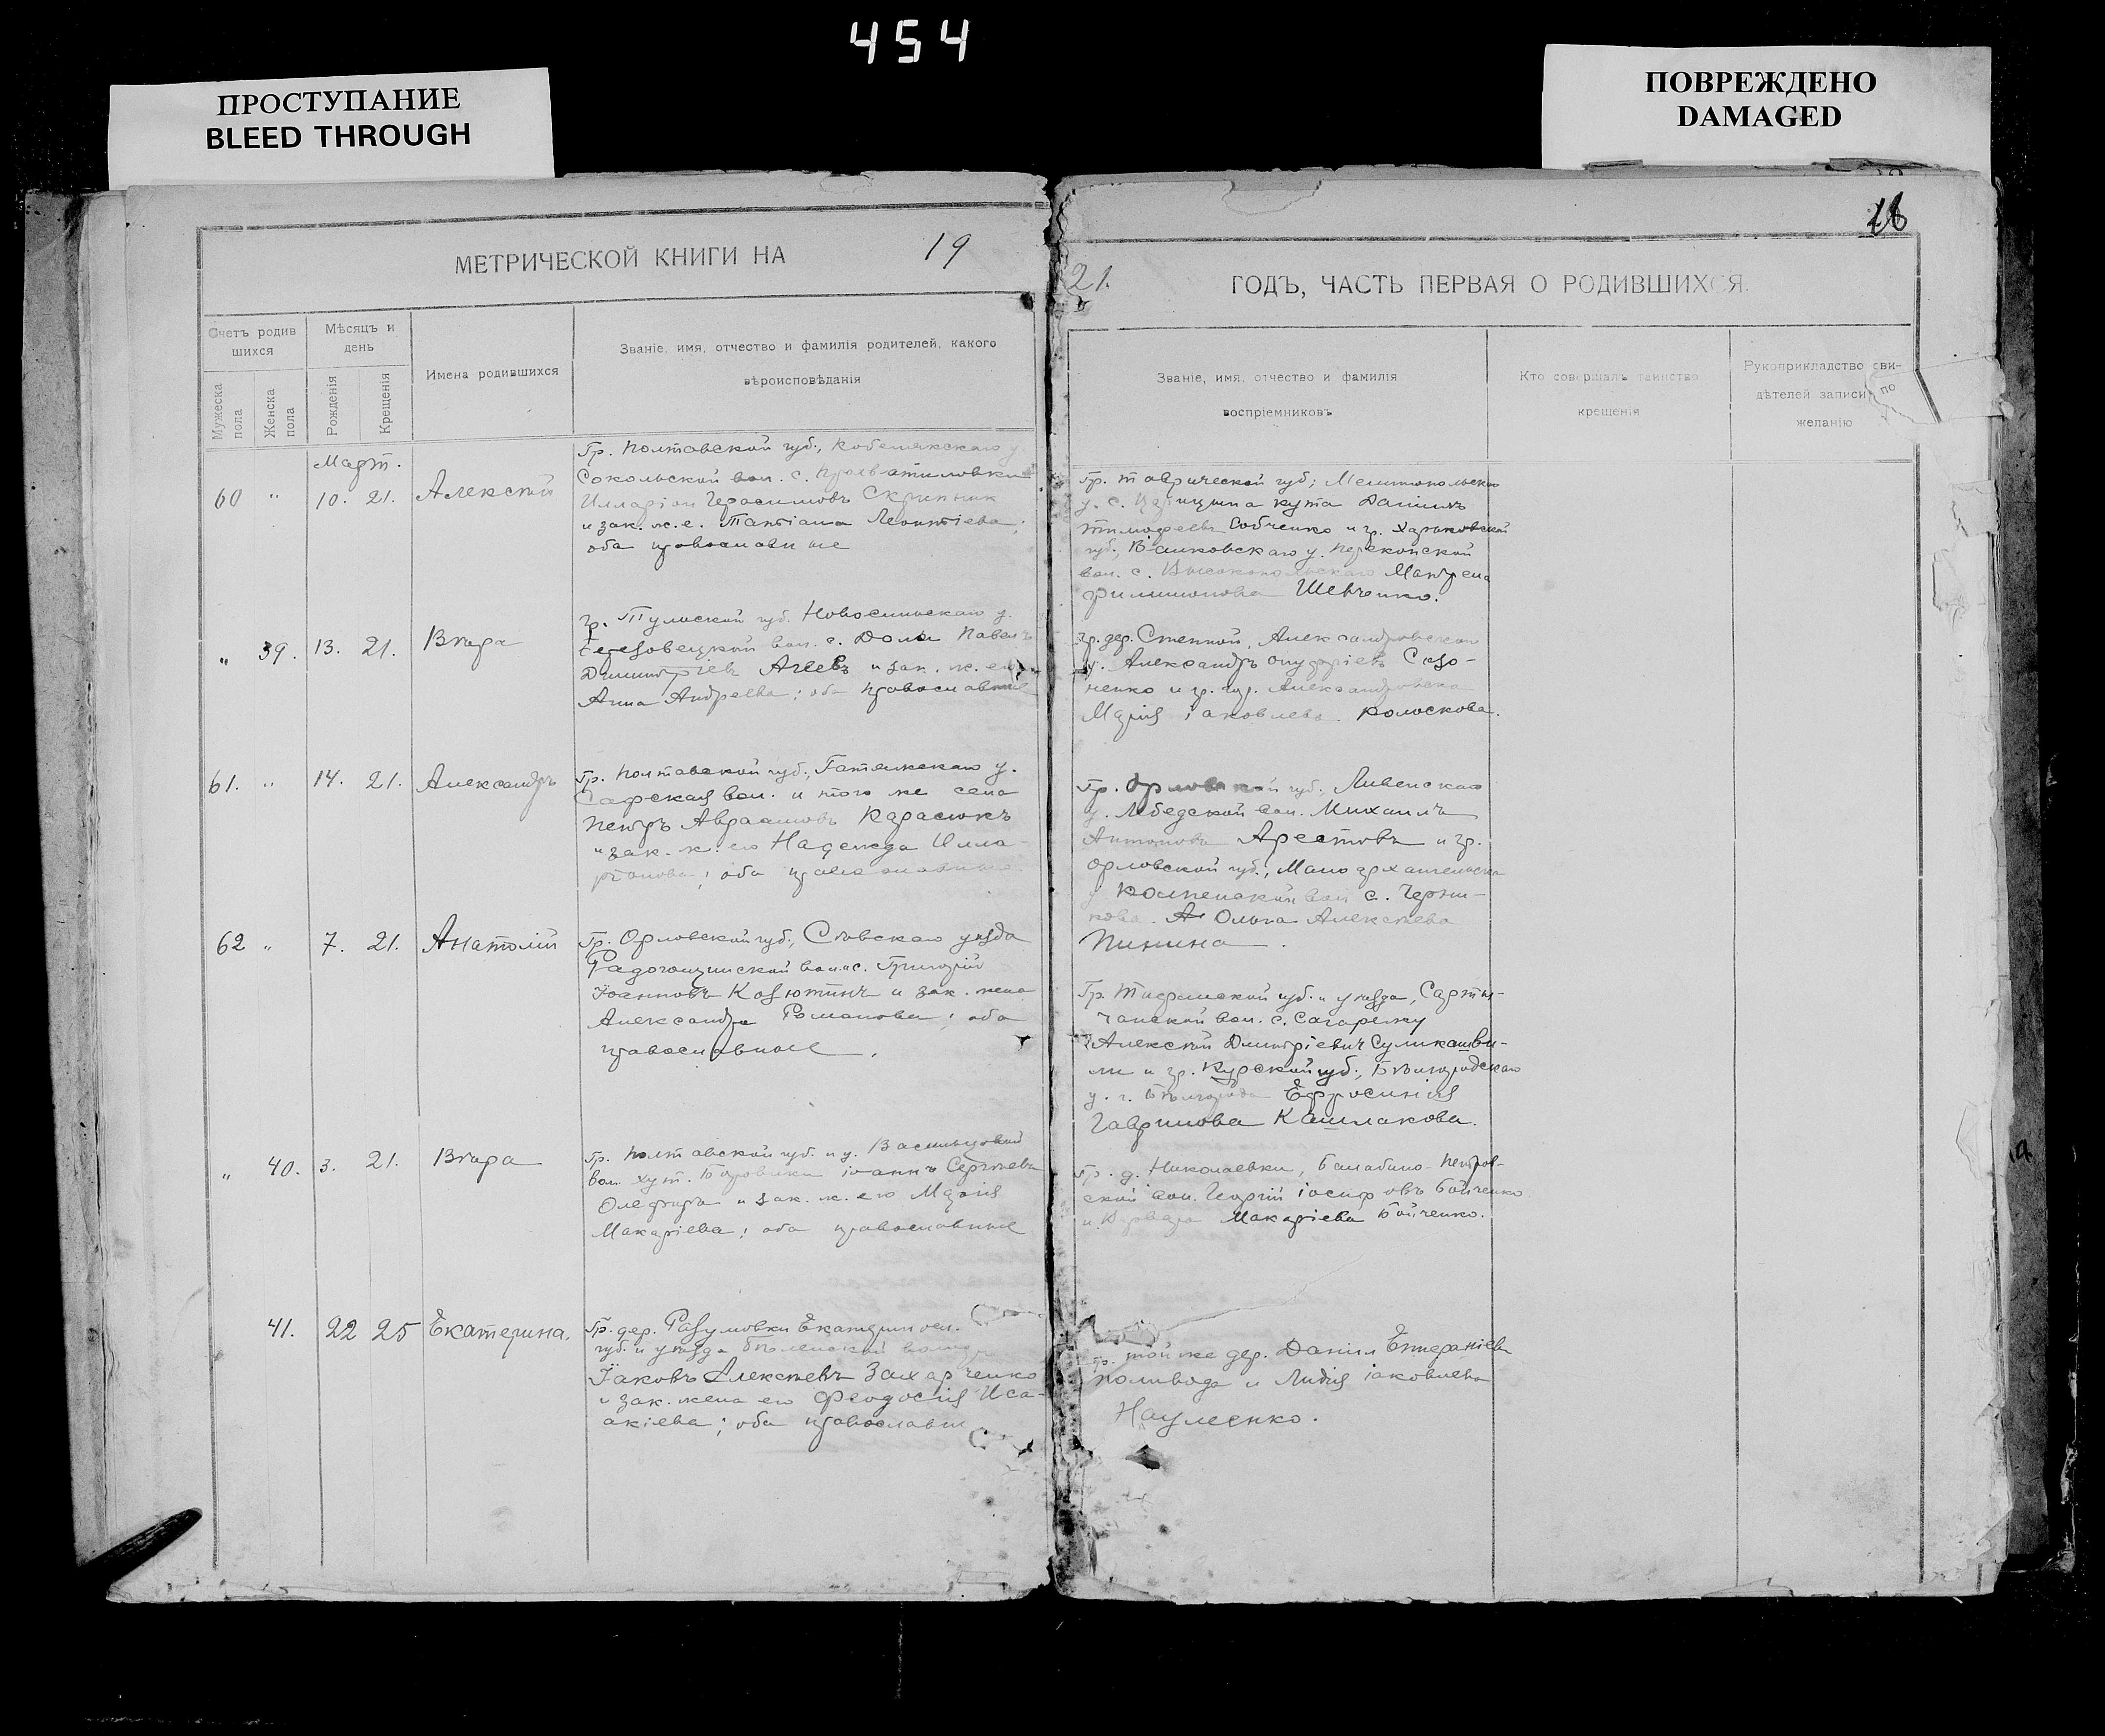 454
ПРОСТУПАНИЕ
BLEED THROUGH
ПОВРЕЖДЕНО
DAMAGED
МЕТРИЧЕСКОЙ КНИГИ НА 19
Счетъ родив
шихся
Мѣсяцъ и
день
Мужеска пола
Женска пола
Рожденія
Крещенія
Имена родившихся
Званіе, имя, отчество и фамилія родителей, какого
вѣроисповѣданія
Март.
60 " 10. 21. Алексѣй
Гр. Полтавской губ., Кобелякскаго у.
Сокольской вол. с.
Илларіон Герасимовъ Скрипник
и зак. ж. е. Татіана Леонтіева;
оба православные
" 39. 13. 21. Вѣра
Гр. Тульской губ. Новосильскаго у.
вол. с. Долы Павелъ
Димитріевъ Агеевъ и зак. ж. его
Анна Андреева; оба православные
61. " 14. 21. Александръ
Гр. Полтавской губ., у.
вол. и того же села
Петръ Авраамовъ Карасюкъ
и зак. ж. его Надежда Илла-
ріонова; оба православные
62 " 7. 21. Анатолій
Гр. Орловской губ., Сѣвскаго уѣзда
Радогощинской вол. и с. Григорій
Іоанновъ Козютинъ и зак. жена
Александра Романова; оба
православные.
" 40. 3. 21. Вѣра
Гр. Полтавской губ. и у. Васильцовской
вол. хут. Боровики Іоаннъ Сергѣевъ
Олефиръ и зак. ж. его Марія
Макаріева; оба православные
41. 22 25 Екатерина.
Гр. дер. Разумовки Екатеринос.
губ. и уѣзда
Іаковъ Алексѣевъ Захарченко
и зак. жена его Феодосія Иса-
акіева; оба православн
21. ГОДЪ, ЧАСТЬ ПЕРВАЯ О РОДИВШИХСЯ.
Званіе, имя, отчество и фамилія
воспріемниковъ
Кто совершалъ таинство
крещенія
Рукоприкладство сви-
дѣтелей записи по
желанію
Гр. Таврической губ.; Мелитопольскаго
у. с. Царицына кута Даніилъ
Тимофеевъ Собченко и гр. Харьковской
губ., Валковскаго у. Перекопской
вол. с. Высокопольскаго Матрена
Филимонова Шевченко.
Гр. дер. Степной, Александровскаго
у. Александръ Сазо-
ненко и гр. гор. Александровска
Марія Іаковлева Колоскова.
Гр. Орловской губ., Ливенскаго
у. Лебедской вол. Михаилъ
Антоновъ Арестовъ и гр.
Орловской губ., Малоархангельскаго
у. Колпенской вол. с.
Ольга Алексѣева
Пинина.
Гр. Тифлисской губ. и уѣзда,
вол. с.
Алексѣй Димитріевич Суликашви-
ли и гр. Курской губ., Бѣлгородскаго
у. г. Бѣлгорода Ефросинія
Гаврилова Кашлакова.
Гр. д. Николаевки, Балабино-Петров-
ской вол. Георгій Іосифовъ Бойченко
и Варвара Макаріева Бойченко.
Гр. той же дер. Даніил
Поливода и Лидія Іаковлева
Науменко.